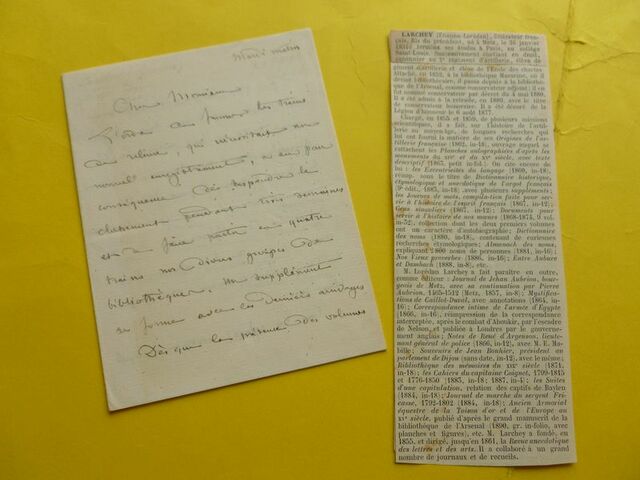 Mardi matin
Cher Monsieur
L'ordre de
de volume, qui
nouvel enregistrement, a eu pour
conséquence de suspendre le
classement pendant trois semaines
et de faire mettre en quatre
trains nos divers groupes de
bibliothèque. Un supplément
se forme avec les derniers arrivages
Dès que la présence des volumes
LARCHEY (Étienne-Lorédan), littérateur fran-
çais, fils du précédent, né à Metz, le 26 janvier
1831, termina ses études à Paris, au collège
Saint-Louis. Successivement étudiant en droit,
canonnier au 5e régiment d'artillerie, élève de
l'École des chartes
Attaché, en 1852, à la bibliothèque Mazarine, où il
devint bibliothécaire, il passa depuis à la bibliothè-
que de l'Arsenal, comme conservateur adjoint; il en
fut nommé conservateur par décret du 4 mai 1880.
Il a été admis à la retraite, en 1880, avec le titre
de conservateur honoraire. Il a été décoré de la
Légion d'honneur le 6 août 1877.
Chargé, en 1858 et 1859, de plusieurs missions
scientifiques, il a fait, sur l'histoire de l'artil-
lerie au moyen-âge, de longues recherches qui
ont fourni la matière de ses Origines de l'ar-
tillerie française (1862, in-12), ouvrage auquel se
rattachent les Planches autographiées d'après les
monuments du XIVe et du XVe siècle, avec texte
descriptif (1863, petit in-fol.). On cite encore de
lui : les Excentricités du langage (1860, in-18),
réimp. sous le titre de Dictionnaire historique,
étymologique et anecdotique de l'argot français
(9e édit., 1883, in-18), avec plusieurs suppléments;
les Joueurs de mots, compilation faite pour ser-
vir à l'histoire de l'esprit français (1867, in-12);
Gens singuliers (1867, in-12); Documents pour
servir à l'histoire de nos mœurs (1868-1874, 9 vol.
in-32), collection dont les deux premiers volumes
ont un caractère d'autobiographie; Dictionnaire
des noms (1880, in-18), contenant de curieuses
recherches étymologiques; Almanach des noms,
expliquant 2800 noms de personnes (1881, in-16);
Nos Vieux proverbes (1886, in-16); Entre Aubure
et Dambach (1888, in-8), etc.
M. Lorédan Larchey a fait paraître en outre,
comme éditeur : Journal de Jehan Aubrion, bour-
geois de Metz, avec sa continuation par Pierre
Aubrion, 1465-1512 (Metz, 1857, in-8); Mystifica-
tions de Caillot-Duval, avec annotations (1864, in-
16); Correspondance intime de l'armée d'Égypte
(1866, in-16), réimpression de la correspondance
interceptée, après le combat d'Aboukir, par l'escadre
de Nelson, et publiée à Londres par le gouverne-
ment anglais; Notes de René d'Argenson, lieute-
nant général de police (1866, in-12), avec M. E. Ma-
bille; Souvenirs de Jean Bouhier, président au
parlement de Dijon (sans date, in-12), avec le même;
Bibliothèque des mémoires du XIXe siècle (1871,
in-18); les Cahiers du capitaine Coignet, 1799-1815
et 1776-1850 (1883, in-18; 1887, in-4); les Suites
d'une capitulation, relation des captifs de Baylen
(1884, in-18); Journal de marche du sergent Fri-
casse, 1792-1802 (1884, in-18); Ancien Armorial
équestre de la Toison d'or et de l'Europe au
XVe siècle, publié d'après le grand manuscrit de la
bibliothèque de l'Arsenal (1890, gr. in-folio, avec
planches et figures), etc. M. Larchey a fondé, en
1855, et dirigé, jusqu'en 1861, la Revue anecdotique
des lettres et des arts. Il a collaboré à un grand
nombre de journaux et de recueils.